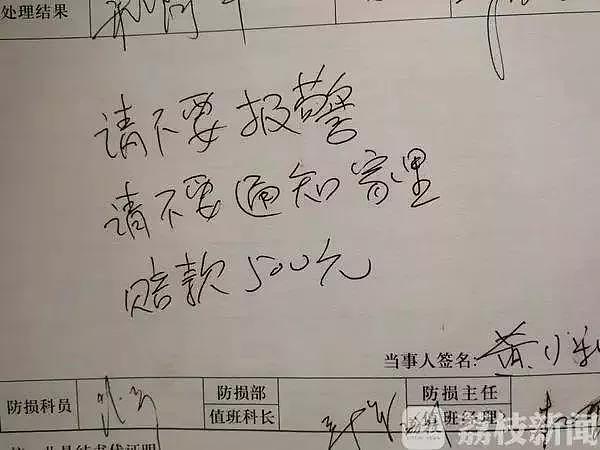 处理结果
请不要报警
请不要通知家里
赔款500元
当事人签名:黄小
防损科员
防损部
值班科长
防损主任
值班经理
荔枝新闻